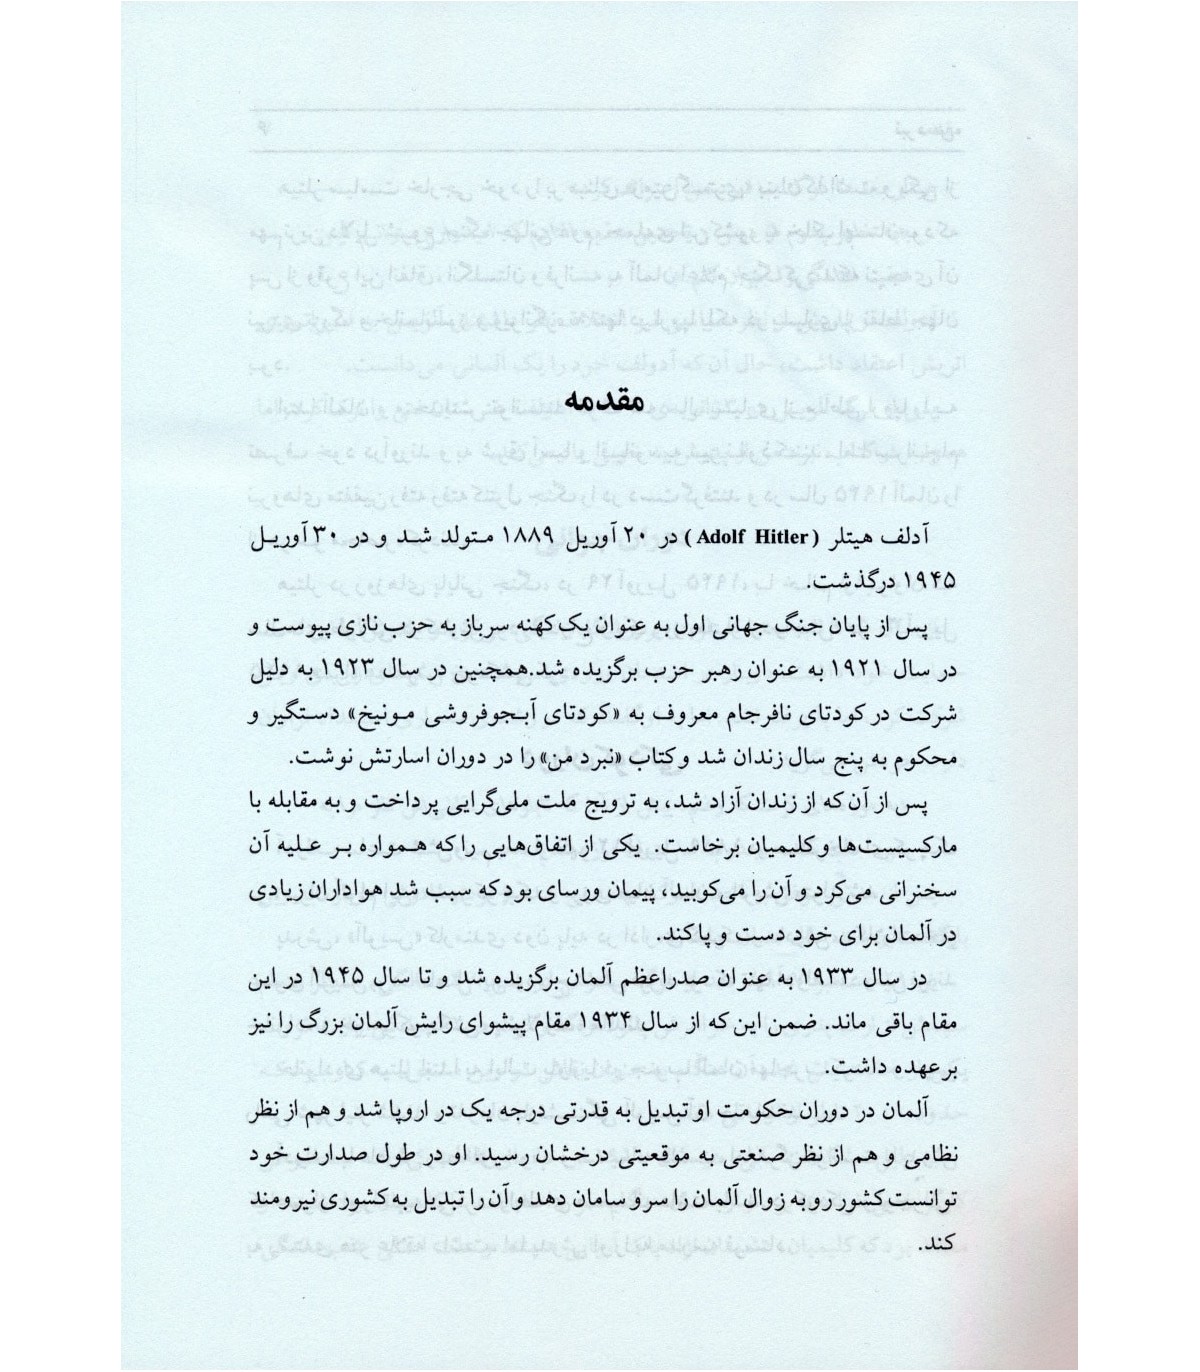 مقدمه
آدلف هیتلر (Adolf Hitler) در ۲۰ آوریل ۱۸۸۹ متولد شد و در ۳۰ آوریل
۱۹۴۵ درگذشت.
پس از پایان جنگ جهانی اول به عنوان یک کهنه سرباز به حزب نازی پیوست و
در سال ۱۹۲۱ به عنوان رهبر حزب برگزیده شد.همچنین در سال ۱۹۲۳ به دلیل
شرکت در کودتای نافرجام معروف به «کودتای آبجوفروشی مونیخ» دستگیر و
محکوم به پنج سال زندان شد و کتاب «نبرد من» را در دوران اسارتش نوشت.
پس از آن که از زندان آزاد شد، به ترویج ملت ملی‌گرایی پرداخت و به مقابله با
مارکسیست‌ها و کلیمیان برخاست. یکی از اتفاق‌هایی را که همواره بر علیه آن
سخنرانی می‌کرد و آن را می‌کوبید، پیمان ورسای بود که سبب شد هواداران زیادی
در آلمان برای خود دست و پا کند.
در سال ۱۹۳۳ به عنوان صدراعظم آلمان برگزیده شد و تا سال ۱۹۴۵ در این
مقام باقی ماند. ضمن این که از سال ۱۹۳۴ مقام پیشوای رایش آلمان بزرگ را نیز
برعهده داشت.
آلمان در دوران حکومت او تبدیل به قدرتی درجه یک در اروپا شد و هم از نظر
نظامی و هم از نظر صنعتی به موقعیتی درخشان رسید. او در طول صدارت خود
توانست کشور رو به زوال آلمان را سر و سامان دهد و آن را تبدیل به کشوری نیرومند
کند.